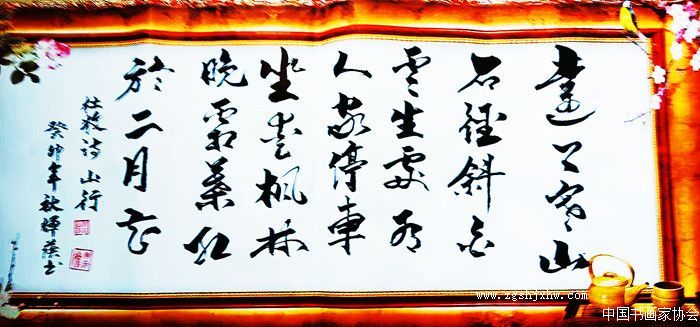 遠上寒山
石徑斜白
雲生處有
人家停車
坐愛楓林
晚霜葉紅
於二月花
杜牧诗山行
癸卯年秋輝
www.zgshjxhw.com
中国书画家协会